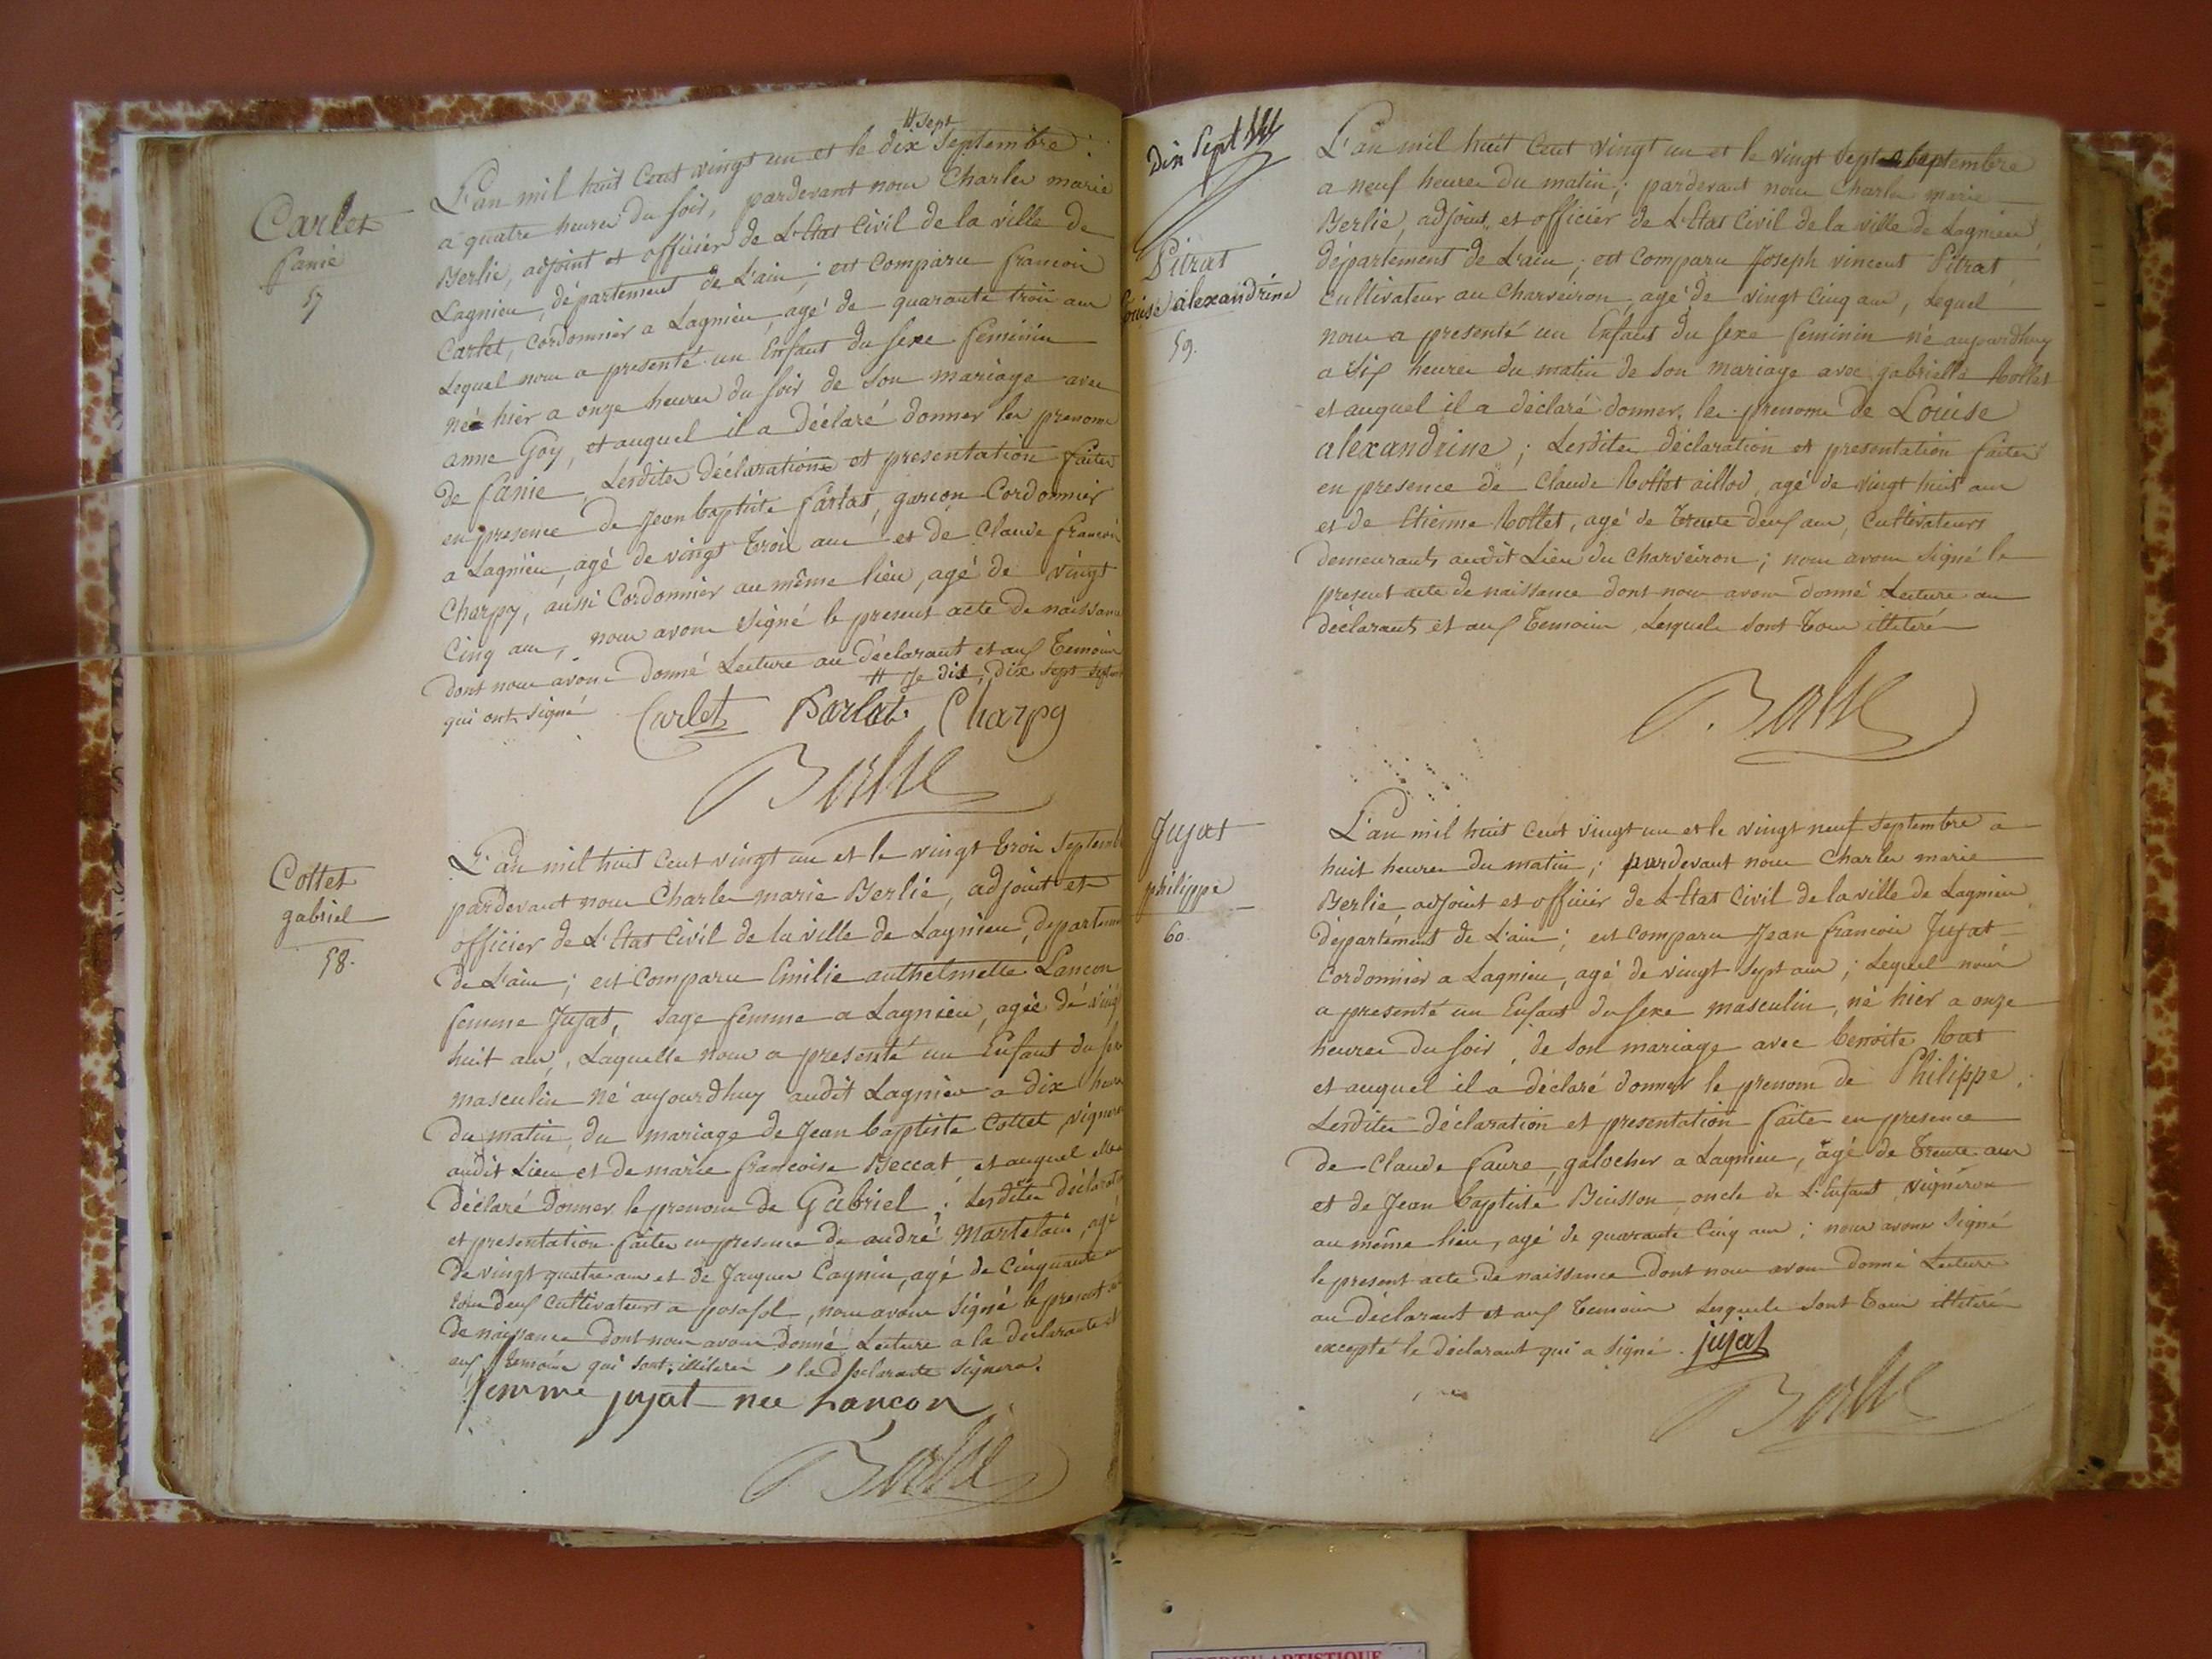 Carlet
fanie
57
# sept
L'an mil huit Cent vingt un et le dix septembre
a quatre heures du soir, pardevant nous Charles marie
Berlie, adjoint et officier de L'Etat Civil de la ville de
Lagnieu, département de L'ain; est Comparu francois
Carlet, Cordonnier a Lagnieu, agé de quarante trois ans
Lequel nous a presenté un Enfant du sexe feminin
né hier a onze heures du soir de son mariage avec
anne Goy, et auquel il a déclaré donner les prenoms
de fanie, Lesdites Déclarations et presentation faites
en presence de Jean baptiste farlat, garcon Cordonnier
a Lagnieu, agé de vingt trois ans et de Claude francois
Charpy, aussi Cordonnier au même lieu, agé de vingt
Cinq ans, nous avons signé le present acte de naissance
Dont nous avons donné Lecture au déclarant et aux Temoins
# Je dis, dix sept
qui ont signé Carlet Charpy
Cottet
gabriel
58.
L'an mil huit Cent vingt un et le vingt trois septemb
pardevant nous Charles marie Berlie, adjoint et
officier de L'Etat Civil de la ville de Lagnieu, departeme
de L'ain; est Comparu Emilie anthelmette Lancon
femme Jujat, sage femme a Lagnieu, agée de vingt
huit ans, Laquelle nous a presenté un Enfant du
masculin né aujourdhuy audit Lagnieu a dix heures
du matin, du mariage de Jean baptiste Cottet, vigneron
audit Lieu et de marie francoise Beccat et auquel elle a
déclaré donner le prenom de Gabriel; Lesdites déclaration
et presentation faites en presence de andré Martelain, agé
de vingt quatre ans et de Jacques Caynin, agé de Cinquante
tous deux Cultivateurs a posafol, nous avons signé le present
de naissance dont nous avons donné Lecture a la déclarante et
aux temoins qui sont illiterés, la déclarante signera.
femme jujat nee Lançon
Dix sept
Pitrat
Louise alexandrine
59.
L'an mil huit Cent vingt un et le vingt sept septembre
a neuf heures du matin; pardevant nous Charles marie
Berlie, adjoint et officier de L'Etat Civil de la ville de Lagnieu
département de L'ain; est Comparu Joseph vincent Pitrat
Cultivateur au Charveiron agé de vingt Cinq ans, Lequel
nous a presenté un Enfant du sexe feminin né aujourdhuy
a six heures du matin de son mariage avec gabrielle bollet
et auquel il a déclaré donner les prenoms de Louise
alexandrine; Lesdites déclaration et presentation faites
en presence de Claude aillod, agé de vingt huit ans
et de Etienne bollet, agé de trente deux ans, Cultivateurs
demeurants audit Lieu du Charveiron; nous avons signé le
present acte de naissance dont nous avons donné Lecture au
déclarant et aux Temoins, Lesquels sont tous illiterés
Jujat
philippe
60.
L'an mil huit Cent vingt un et le vingt neuf septembre a
huit heures du matin; pardevant nous Charles marie
Berlie, adjoint et officier de L'Etat Civil de la ville de Lagnieu
département de L'ain; est Comparu Jean francois Jujat
Cordonnier a Lagnieu, agé de vingt sept ans; Lequel nous
a presenté un Enfant du sexe masculin, né hier a onze
heures du soir, de son mariage avec benoite bat
et auquel il a déclaré donner le prenom de Philippe.
Lesdites déclaration et presentation faites en presence
de Claude faure, galocher a Lagnieu, agé de trente ans
et de Jean baptiste Buisson, oncle de L'Enfant, vigneron
au même lieu, agé de quarante Cinq ans; nous avons signé
le present acte de naissance dont nous avons donné Lecture
au déclarant et aux Temoins Lesquels sont tous illiterés
excepté le déclarant qui a signé. jujat